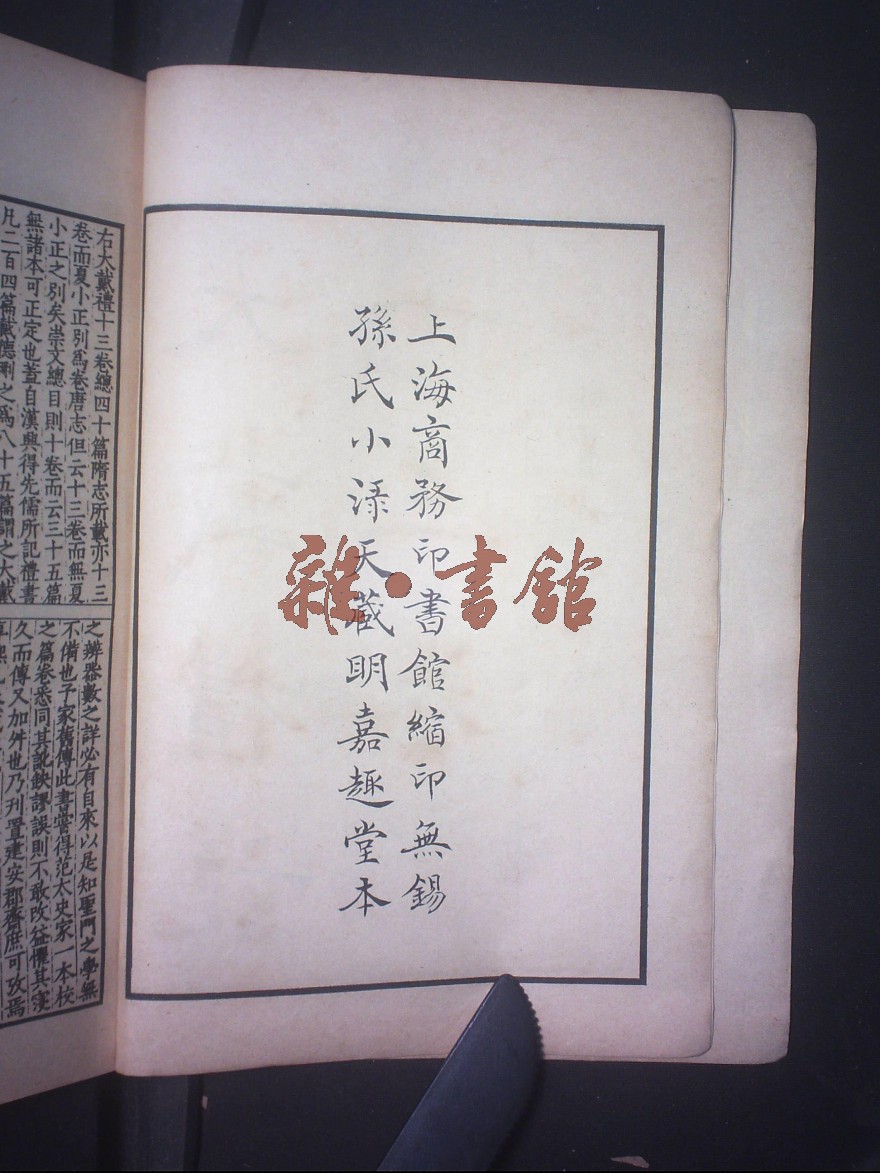 上海商務印書館縮印無錫
孫氏小渌天藏明嘉趣堂本
雜·書館
右大戴禮十三卷總四十篇隋志所載亦十三
卷而夏小正別爲卷唐志但云十三卷而無夏
小正之別矣崇文總目則十卷而云三十五篇
無諸本可正定也蓋自漢興得先儒所記禮書
凡二百四篇戴德刪之爲八十五篇謂之大戴
之辨器數之詳必有自來以是知聖門之學無
不備也予家舊傳此書嘗得范太史家一本校
之篇卷悉同其訛缺謬誤則不敢改益懼其寖
久而傳又加舛也乃刊置建安郡齋庶可攷焉